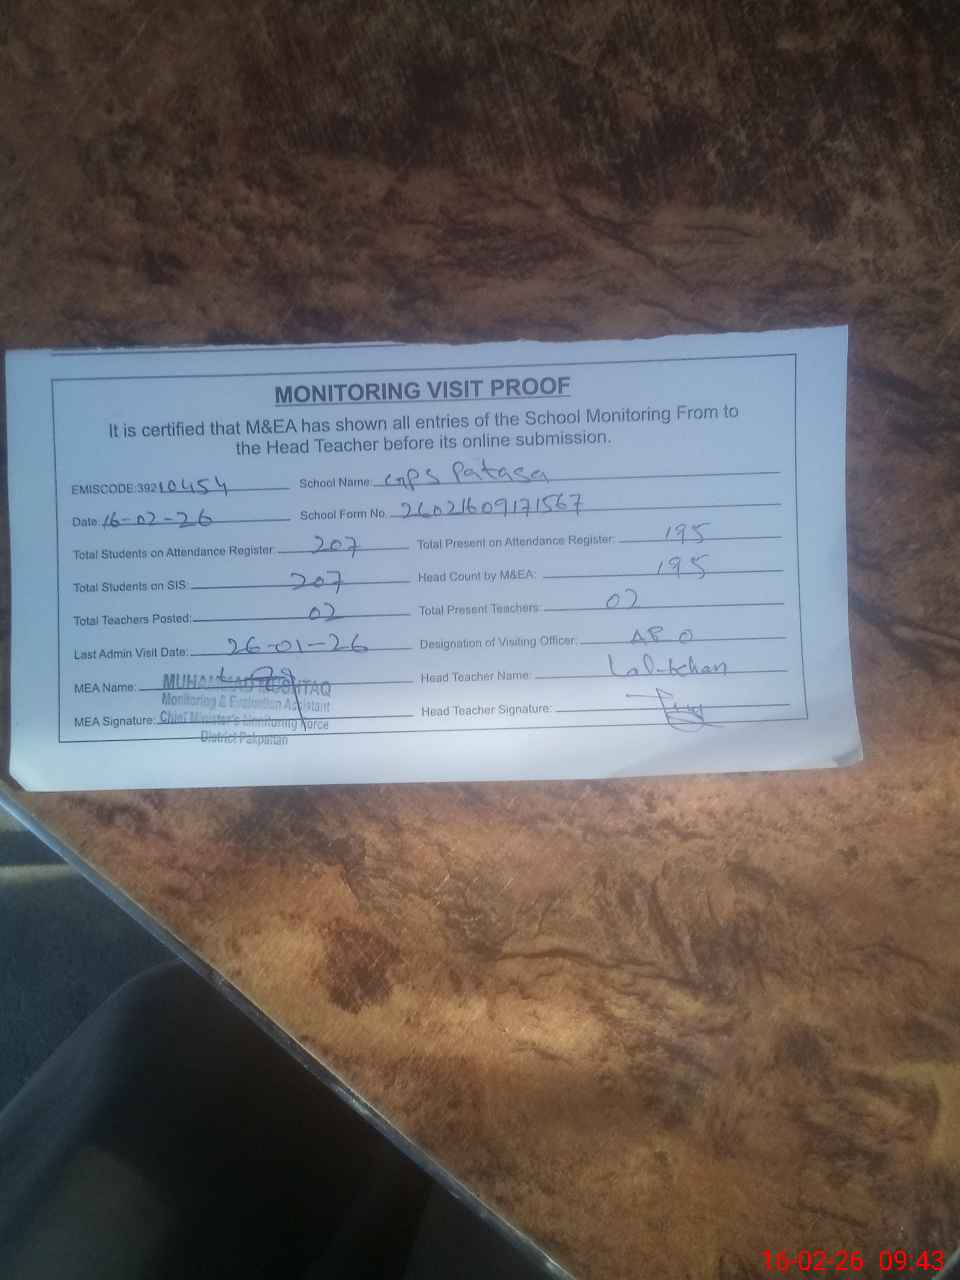 MONITORING VISIT PROOF
It is certified that M&EA has shown all entries of the School Monitoring From to
the Head Teacher before its online submission.
EMISCODE:39210454 School Name: GPS Patasa
Date: 16-02-26 School Form No. 26021609171567
Total Students on Attendance Register: 207 Total Present on Attendance Register: 195
Total Students on SIS: 207 Head Count by M&EA: 195
Total Teachers Posted: 02 Total Present Teachers: 02
Last Admin Visit Date: 26-01-26 Designation of Visiting Officer: AEO
MEA Name: MUHAMMAD MUSHTAQ Head Teacher Name: Lal Khan
Monitoring & Evaluation Assistant
MEA Signature: Chief Minister's Monitoring Force Head Teacher Signature:
District Pakpattan
16-02-26 09:43